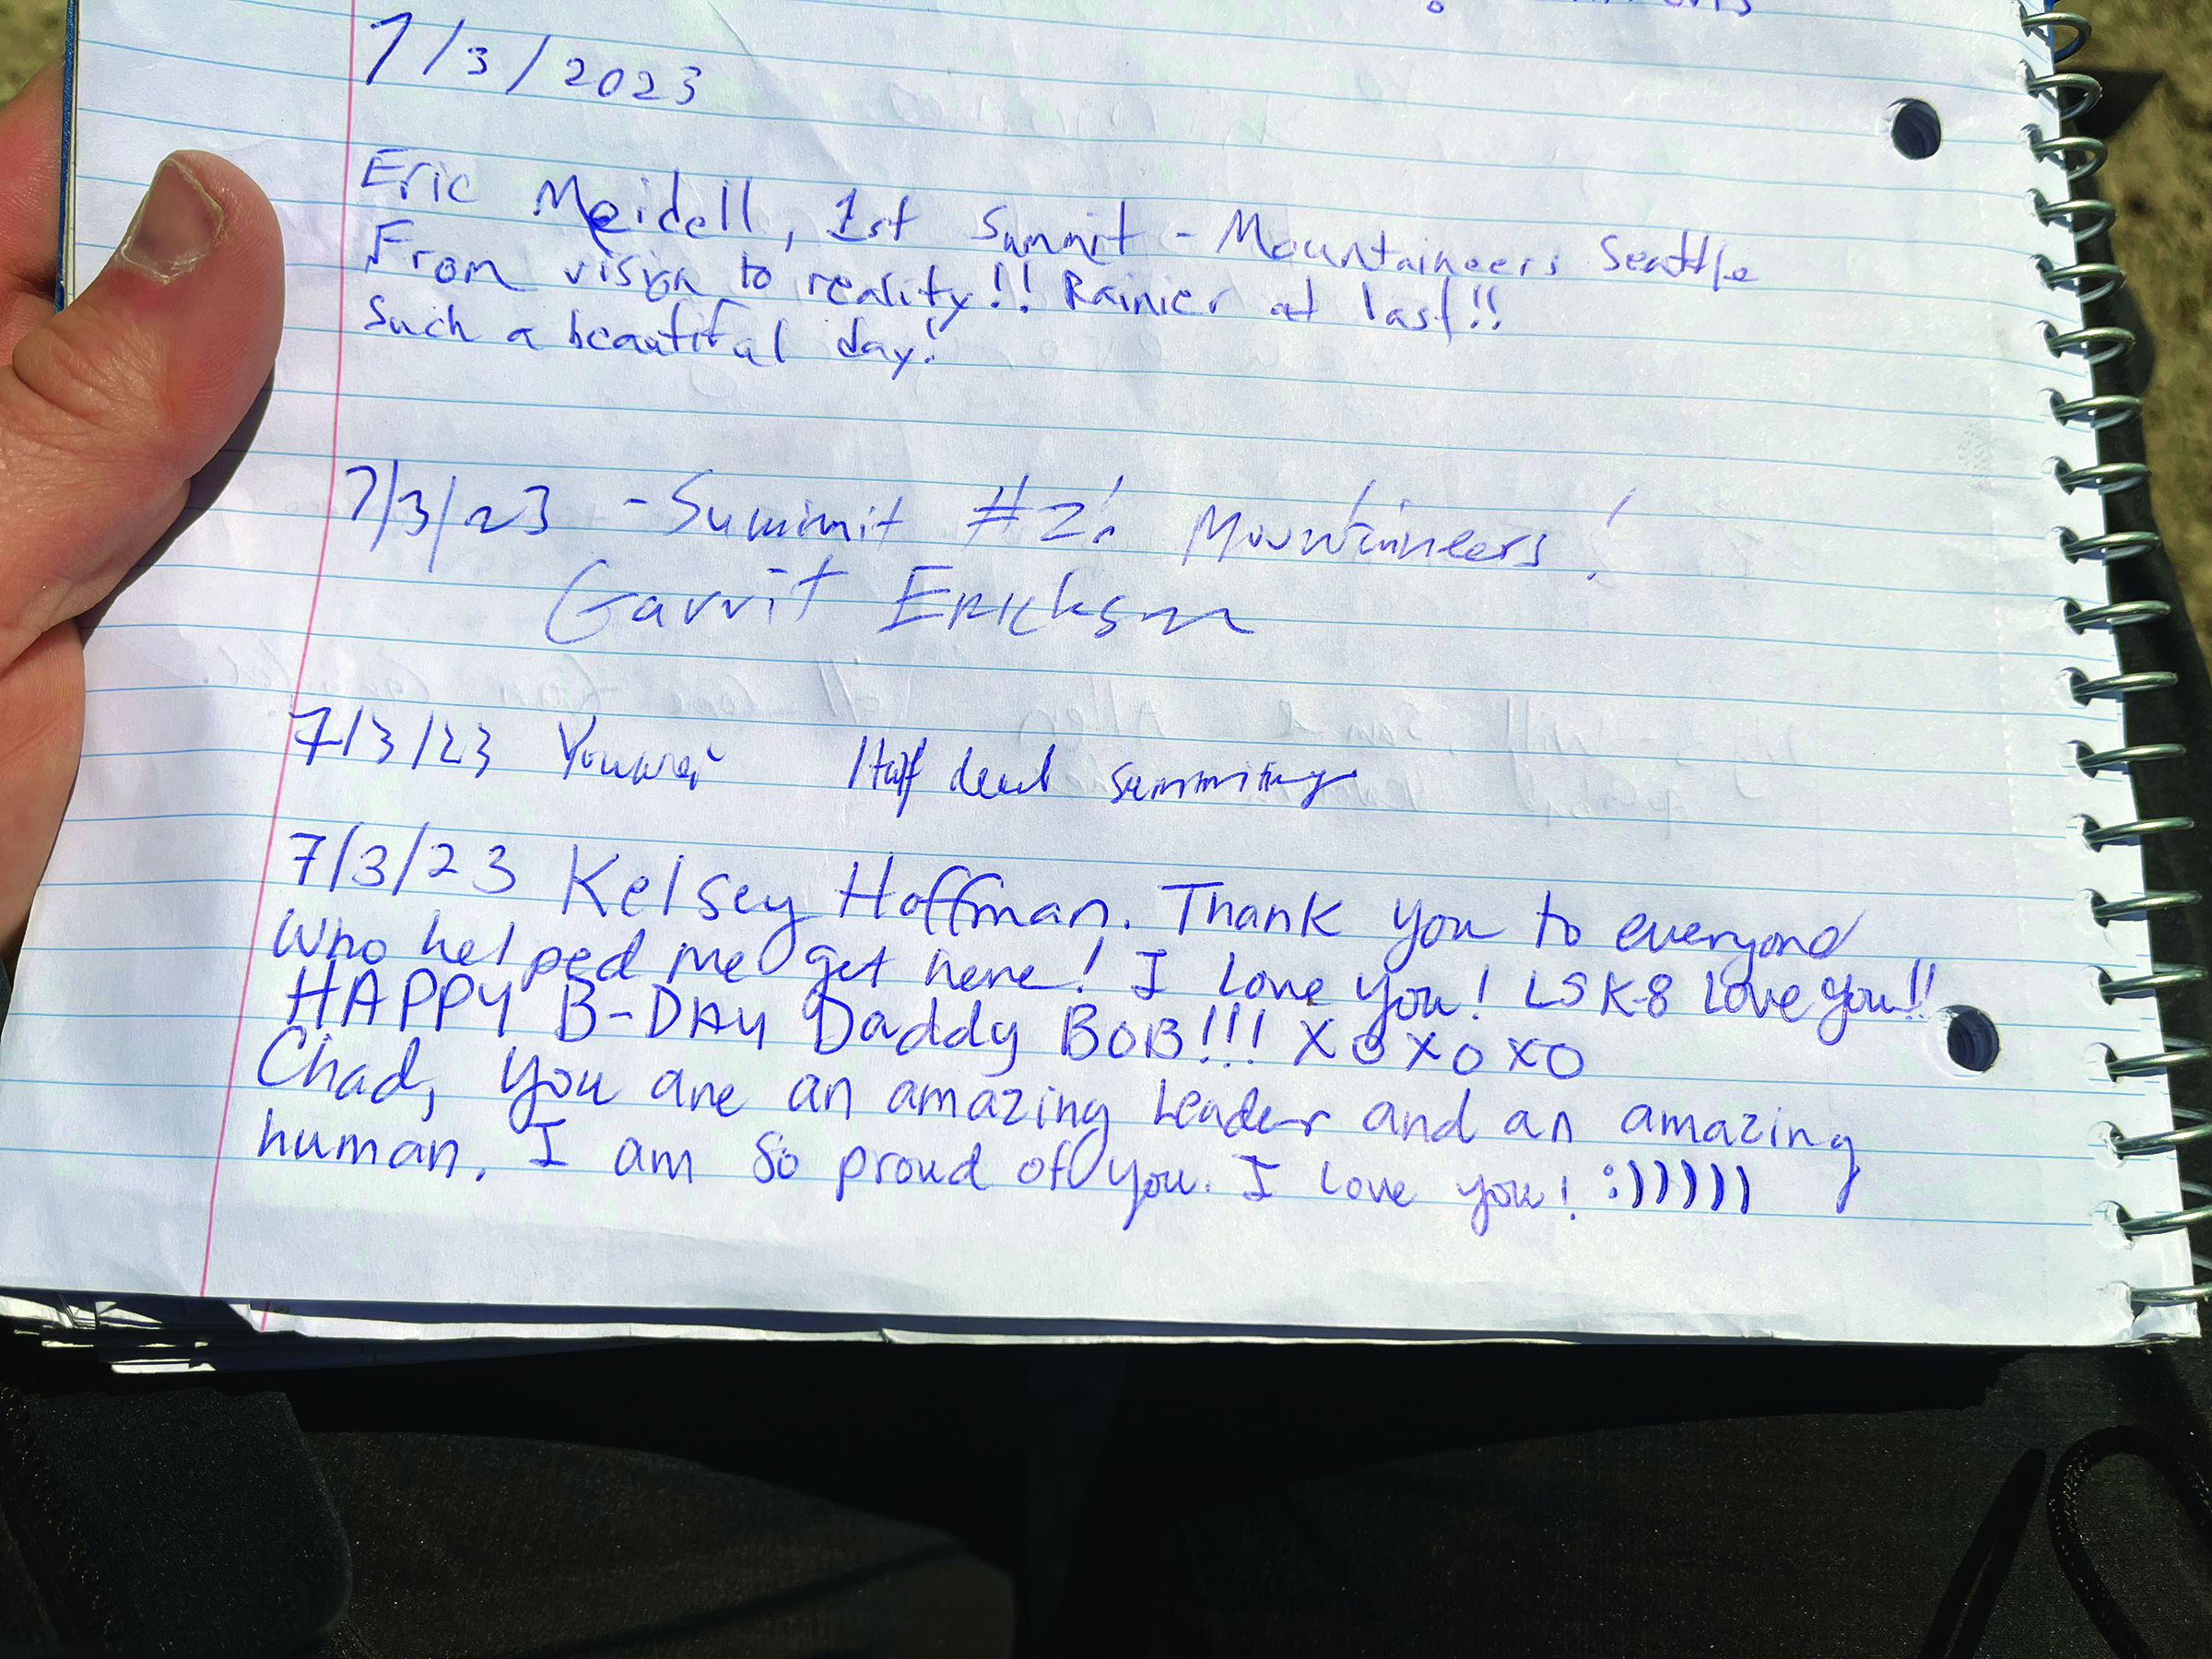 7/3/2023
Eric Meidell, 1st Summit - Mountaineers Seattle
From vision to reality!! Rainier at last!!
Such a beautiful day!
7/3/23 - Summit #2! Mountaineers!
Garrit Erickson
7/3/23 Half dead summiting
7/3/23 Kelsey Hoffman. Thank you to everyone
who helped me get here! I love you! LSK-8 Love you!!
HAPPY B-DAY Daddy BOB!!! XOXOXO
Chad, you are an amazing leader and an amazing
human. I am so proud of you. I love you! :))))))